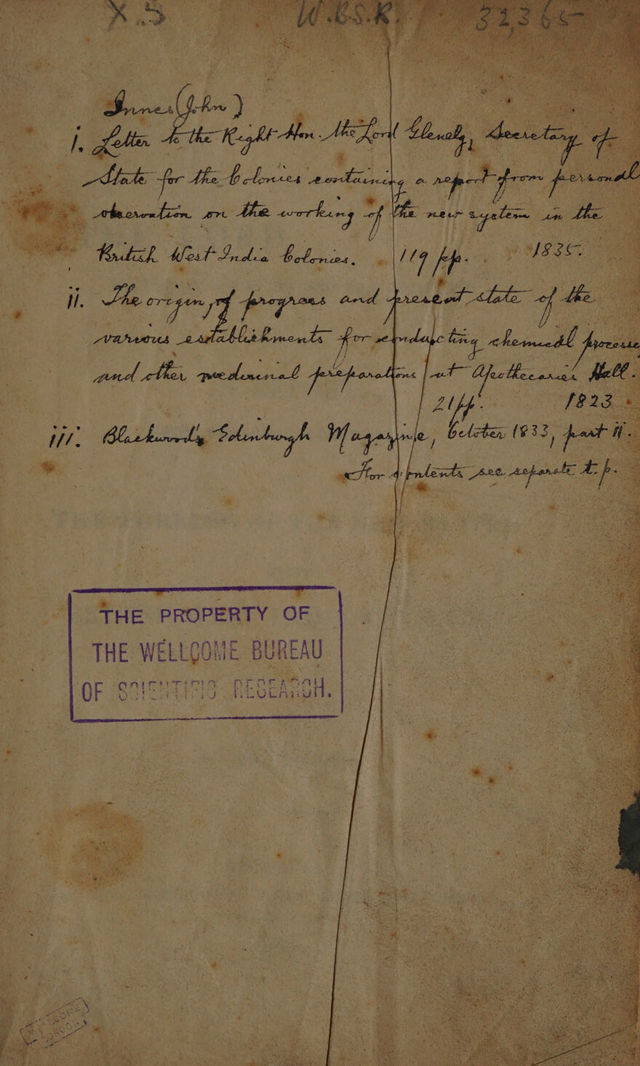 X.S W.B.S.R. 32,365
Innes (John)
i. Letter to the Right Hon. the Lord Glenelg, Secretary of
State for the Colonies containing a report from personal
observation on the working of the new system in the
British West India Colonies. 119 pp. 1835.
ii. The origin, of progress and present state of the
various establishments for conducting chemical processes
and other medicinal preparations at Apothecaries Hall.
21 pp. 1823.
iii. Blackwood's Edinburgh Magazine, October 1833, part ii.
For contents see separate t.p.
THE PROPERTY OF
THE WELLCOME BUREAU
OF SCIENTIFIC RESEARCH.